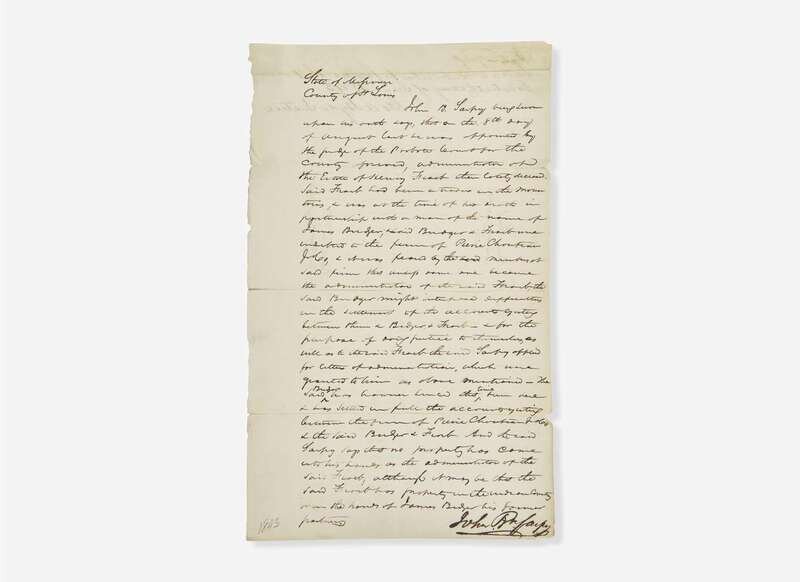 State of Missouri
County of St Louis
John B. Sarpy being sworn
upon his oath says, that on the 8th day
of August last he was appointed by
the judge of the Probate Court for the
County foresaid, administrator of
the Estate of Henry Fraeb then lately deceased
Said Fraeb had been a trader in the Moun
tains, & was at the time of his death in
partnership with a man of the name of
James Bridger, & said Bridger & Fraeb were
indebted to the firm of Pierre Chouteau
Jr & Co, & it was feared by the members of
said firm that unless some one became
the administrator of the said Fraeb the
said Bridger might interpose difficulties
in the settlement of the accounts
between them & Bridger & Fraeb & for the
purpose of doing justice to themselves, as
well as to the said Fraeb the said Sarpy applied
for letters of administration, which were
granted to him as above mentioned The
said Bridger has however since that time been here
& has settled in full the accounts
between the firm of Pierre Chouteau Jr & Co
& the said Bridger & Fraeb And the said
Sarpy says that no property has come
into his hands as the administrator of the
said Fraeb, although it may be that the
said Fraeb has property in the Indian Country
or in the hands of James Bridger his former
partner
John B. Sarpy
1843